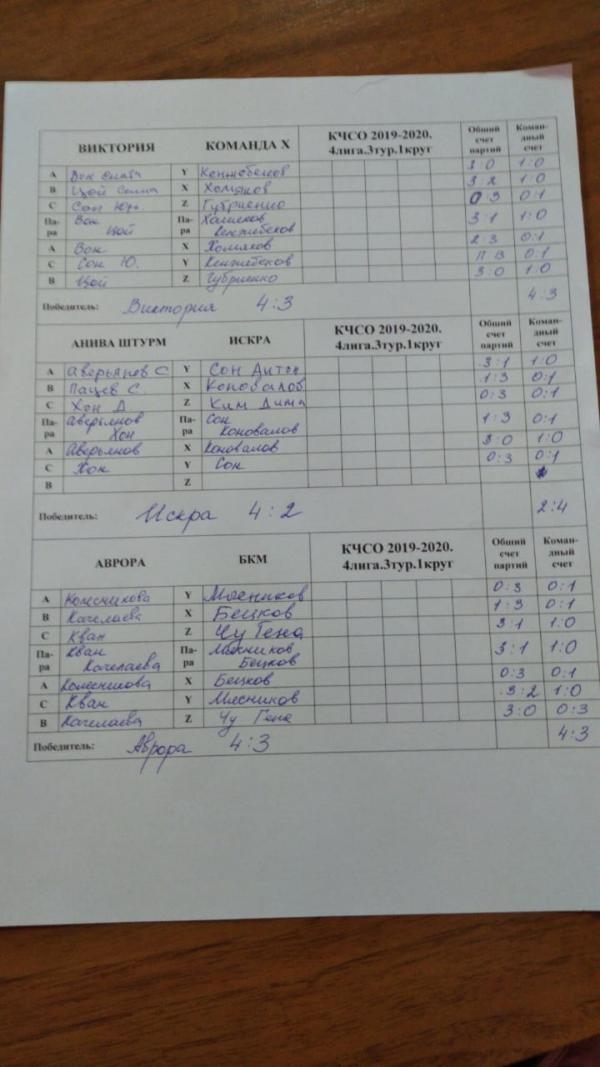 ВИКТОРИЯ КОМАНДА X КЧСО 2019-2020. 4лига.3тур.1круг Общий счет партий Коман-дный счет
A Вон Y Кенжебеков 3:0 1:0
B Цой X Хомяков 3:2 1:0
C Сон Юр. Z Губриенко 0:3 0:1
Па-ра Вон Цой Па-ра Хомяков Кенжебеков 3:1 1:0
A Вон X Хомяков 2:3 0:1
C Сон Ю. Y Кенжебеков П В 0:1
B Цой Z Губриенко 3:0 1:0
Победитель: Виктория 4:3 4:3
АНИВА ШТУРМ ИСКРА КЧСО 2019-2020. 4лига.3тур.1круг Общий счет партий Коман-дный счет
A Аверьянов С Y Сон Антон 3:1 1:0
B Пацев С. X Коновалов 1:3 0:1
C Хон Д Z Ким Дима 0:3 0:1
Па-ра Аверьянов Хон Па-ра Сон Коновалов 1:3 0:1
A Аверьянов X Коновалов 3:0 1:0
C Хон Y Сон 0:3 0:1
B Z
Победитель: Искра 4:2 2:4
АВРОРА БКМ КЧСО 2019-2020. 4лига.3тур.1круг Общий счет партий Коман-дный счет
A Колесникова Y Мясников 0:3 0:1
B Качелаева X Бецков 1:3 0:1
C Кван Z Чу Гена 3:1 1:0
Па-ра Кван Качелаева Па-ра Мясников Бецков 3:1 1:0
A Колесникова X Бецков 0:3 0:1
C Кван Y Мясников 3:2 1:0
B Качелаева Z Чу Гена 3:0 0:3
Победитель: Аврора 4:3 4:3